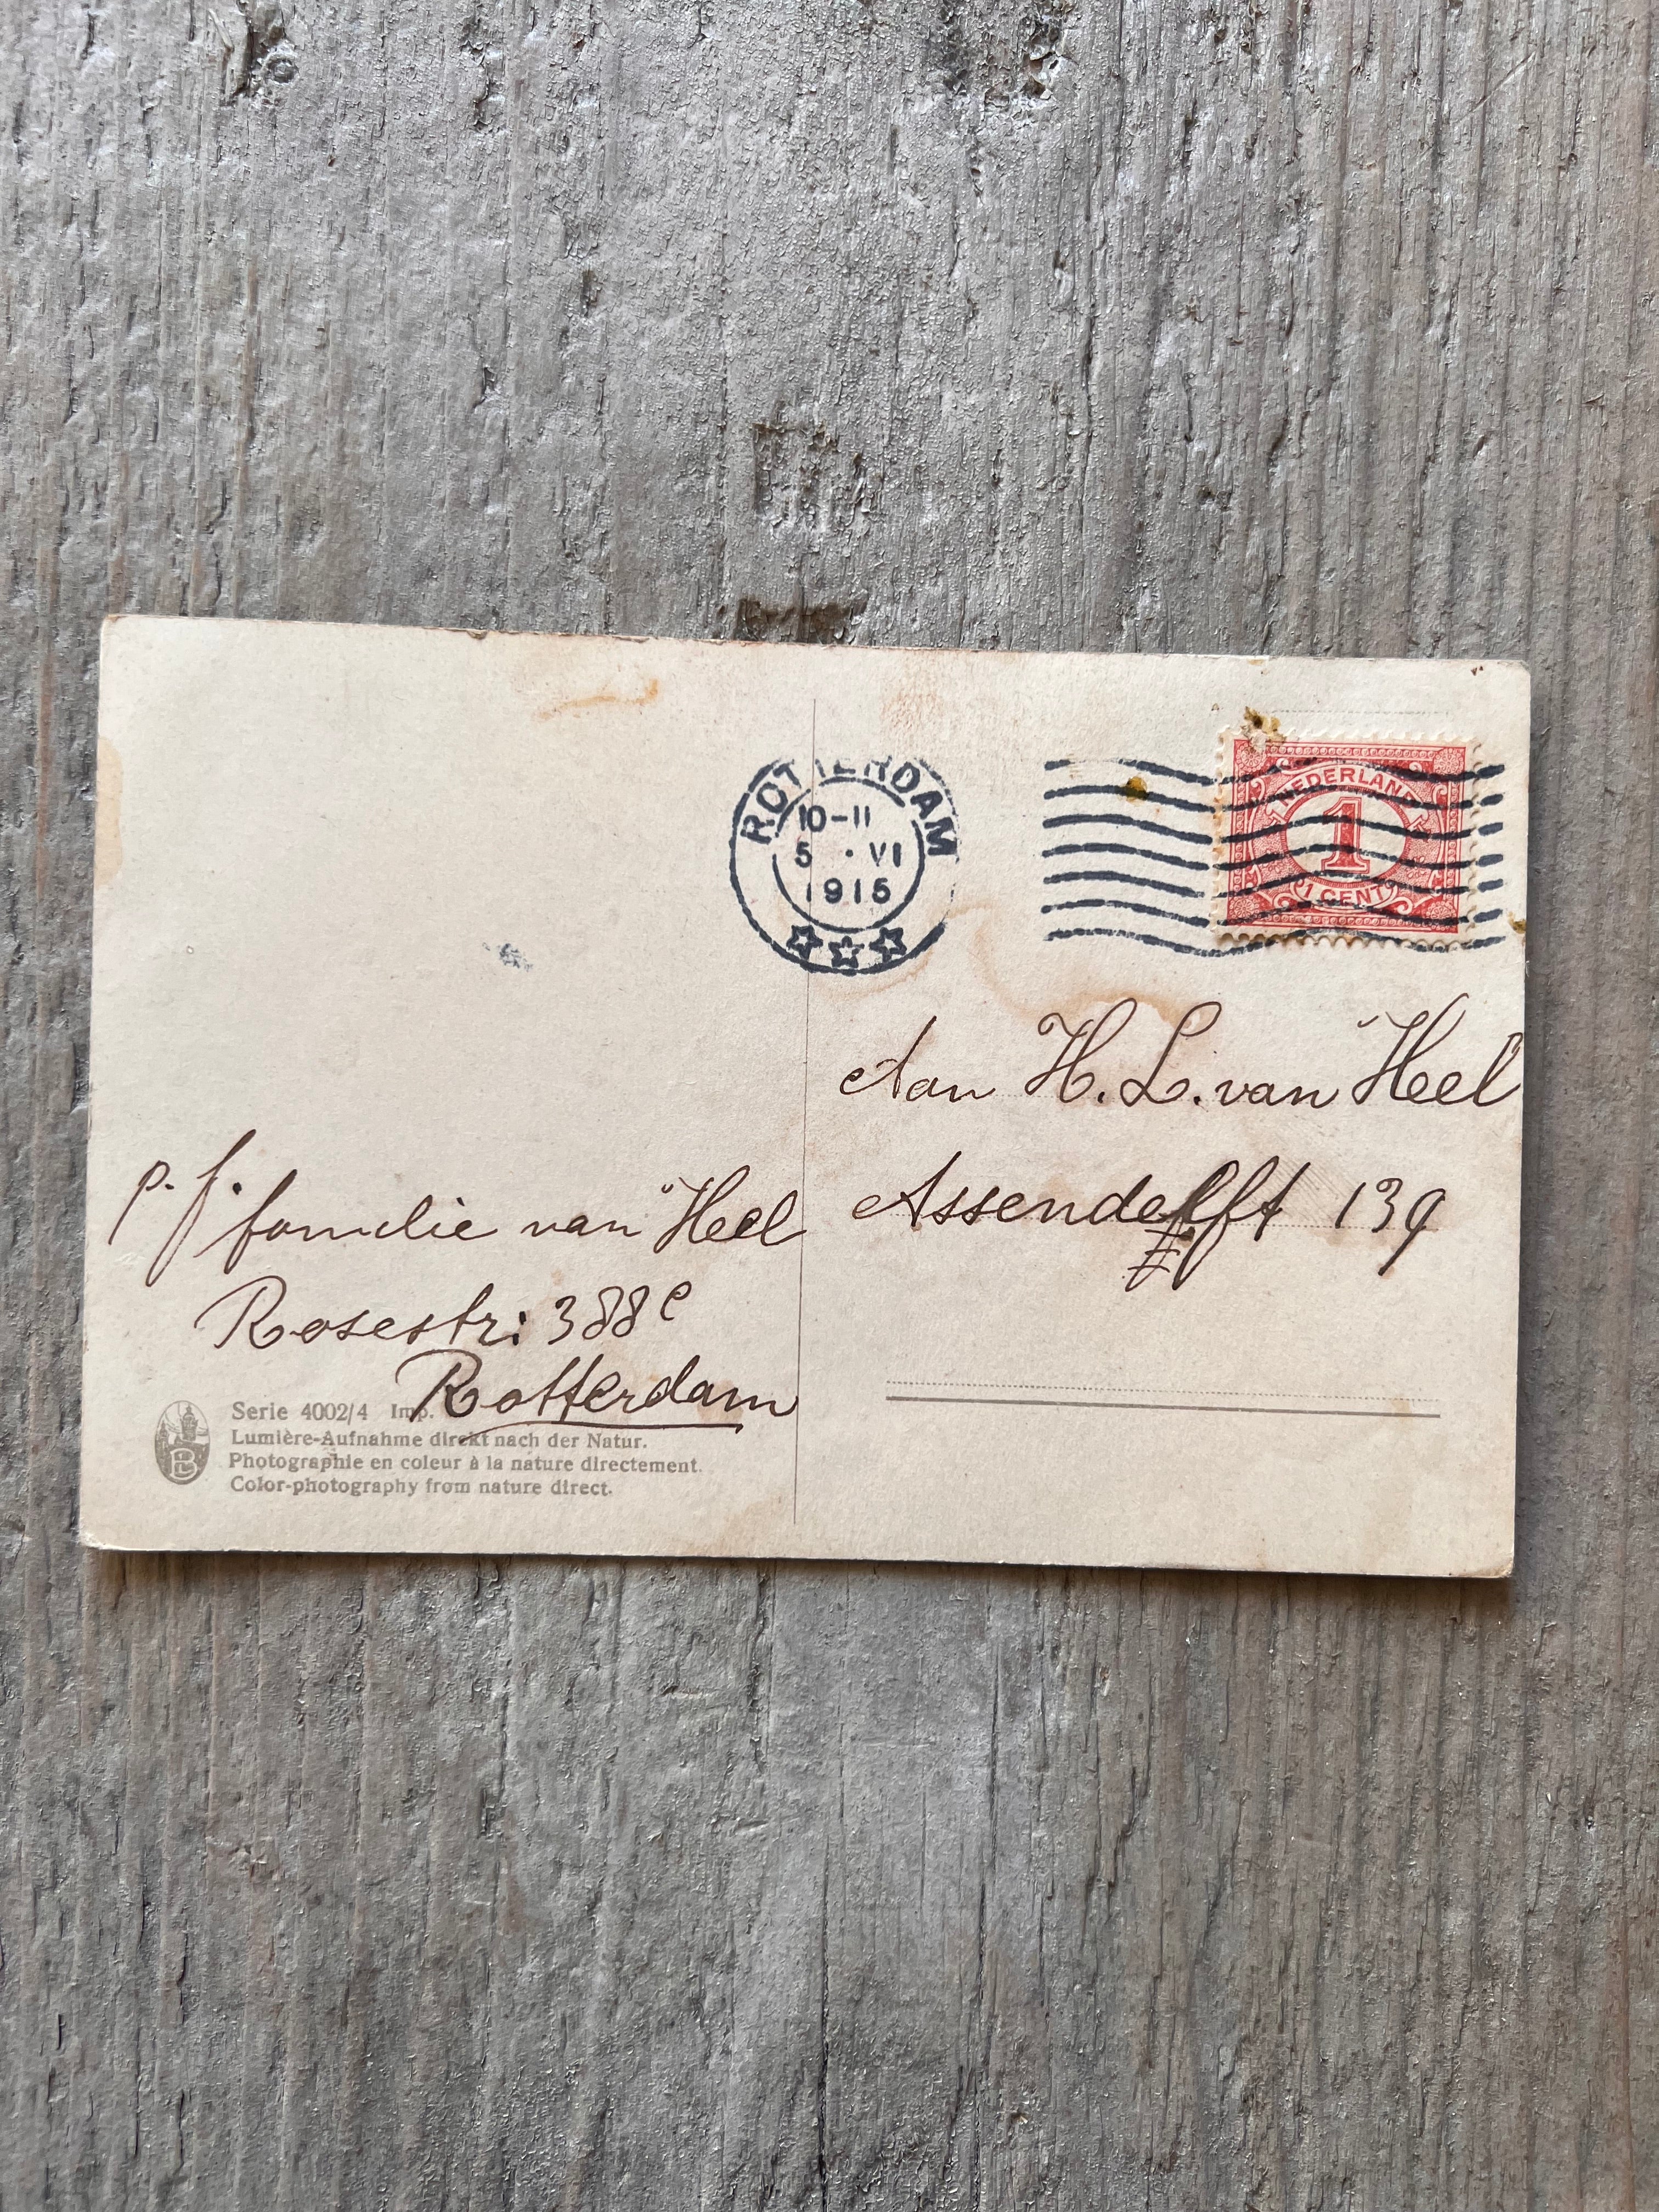 ROTTERDAM
10-11
5 · VI
1915
NEDERLAND
1
1 CENT
Aan H. L. van Heel
Assendelfft 139
p. f.
familie van Heel
Rosestr: 388c
Rotterdam
Serie 4002/4 Imp.
Lumière-Aufnahme direkt nach der Natur.
Photographie en coleur à la nature directement.
Color-photography from nature direct.